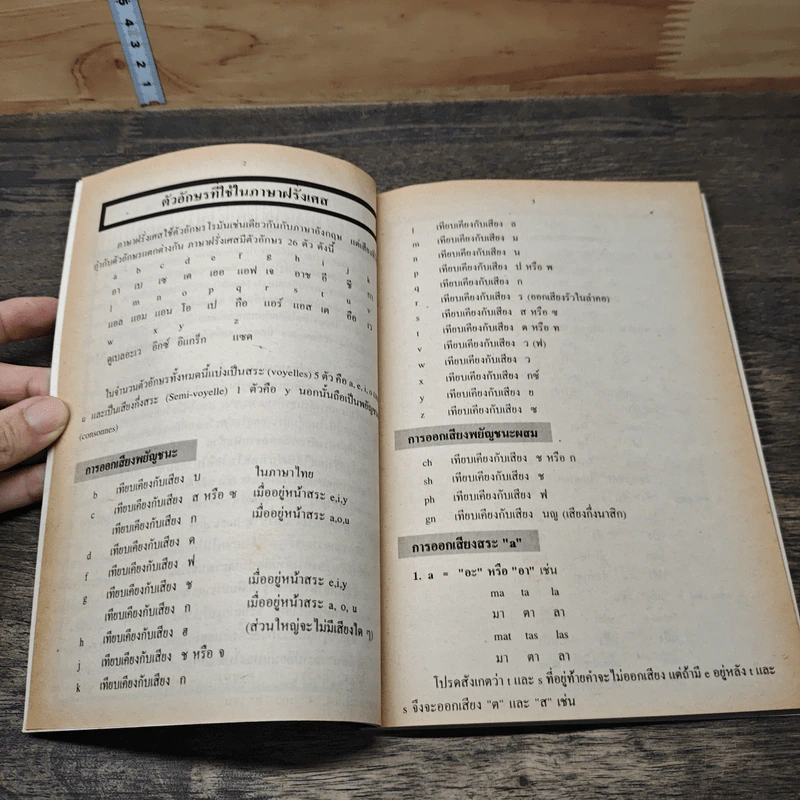 5
4
3
2
1
2
ตัวอักษรที่ใช้ในภาษาฝรั่งเศส
ภาษาฝรั่งเศสใช้ตัวอักษรโรมันเช่นเดียวกันกับภาษาอังกฤษ แต่เสียงที่
กำกับตัวอักษรแตกต่างกัน ภาษาฝรั่งเศสมีตัวอักษร 26 ตัว ดังนี้
a b c d e f g h i j k
อา เบ เซ เด เออ แอฟ เจ อาช อี ชี กา
l m n o p q r s t u v
แอล แอม แอน โอ เป กือ แอร์ แอส เต อือ เว
w x y z
ดูเบลอะเว อีกซ์ อีแกร็ก แซด
ในจำนวนตัวอักษรทั้งหมดนี้แบ่งเป็นสระ (voyelles) 5 ตัว คือ a, e, i, o
u และเป็นเสียงกึ่งสระ (Semi-voyelle) 1 ตัวคือ y นอกนั้นถือเป็นพยัญชนะ
(consonnes)
การออกเสียงพยัญชนะ
b เทียบเคียงกับเสียง บ ในภาษาไทย
c เทียบเคียงกับเสียง ส หรือ ซ เมื่ออยู่หน้าสระ e,i,y
เทียบเคียงกับเสียง ก เมื่ออยู่หน้าสระ a,o,u
d เทียบเคียงกับเสียง ด
f เทียบเคียงกับเสียง ฟ
g เทียบเคียงกับเสียง ช เมื่ออยู่หน้าสระ e,i,y
เทียบเคียงกับเสียง ก เมื่ออยู่หน้าสระ a, o, u
h เทียบเคียงกับเสียง ฮ (ส่วนใหญ่จะไม่มีเสียงใด ๆ)
j เทียบเคียงกับเสียง ช หรือ จ
k เทียบเคียงกับเสียง ก
3
l เทียบเคียงกับเสียง ล
m เทียบเคียงกับเสียง ม
n เทียบเคียงกับเสียง น
p เทียบเคียงกับเสียง ป หรือ พ
q เทียบเคียงกับเสียง ก
r เทียบเคียงกับเสียง ร (ออกเสียงรัวในลำคอ)
s เทียบเคียงกับเสียง ส หรือ ซ
t เทียบเคียงกับเสียง ต หรือ ท
v เทียบเคียงกับเสียง ว (ฟ)
w เทียบเคียงกับเสียง ว
x เทียบเคียงกับเสียง กซ์
y เทียบเคียงกับเสียง ย
z เทียบเคียงกับเสียง ซ
การออกเสียงพยัญชนะผสม
ch เทียบเคียงกับเสียง ช หรือ ก
sh เทียบเคียงกับเสียง ช
ph เทียบเคียงกับเสียง ฟ
gn เทียบเคียงกับเสียง นญ (เสียงกึ่งนาสิก)
การออกเสียงสระ "a"
1. a = "อะ" หรือ "อา" เช่น
ma ta la
มา ตา ลา
mat tas las
มา ตา ลา
โปรดสังเกตว่า t และ s ที่อยู่ท้ายคำจะไม่ออกเสียง แต่ถ้ามี e อยู่หลัง t และ
s จึงจะออกเสียง "ต" และ "ส" เช่น